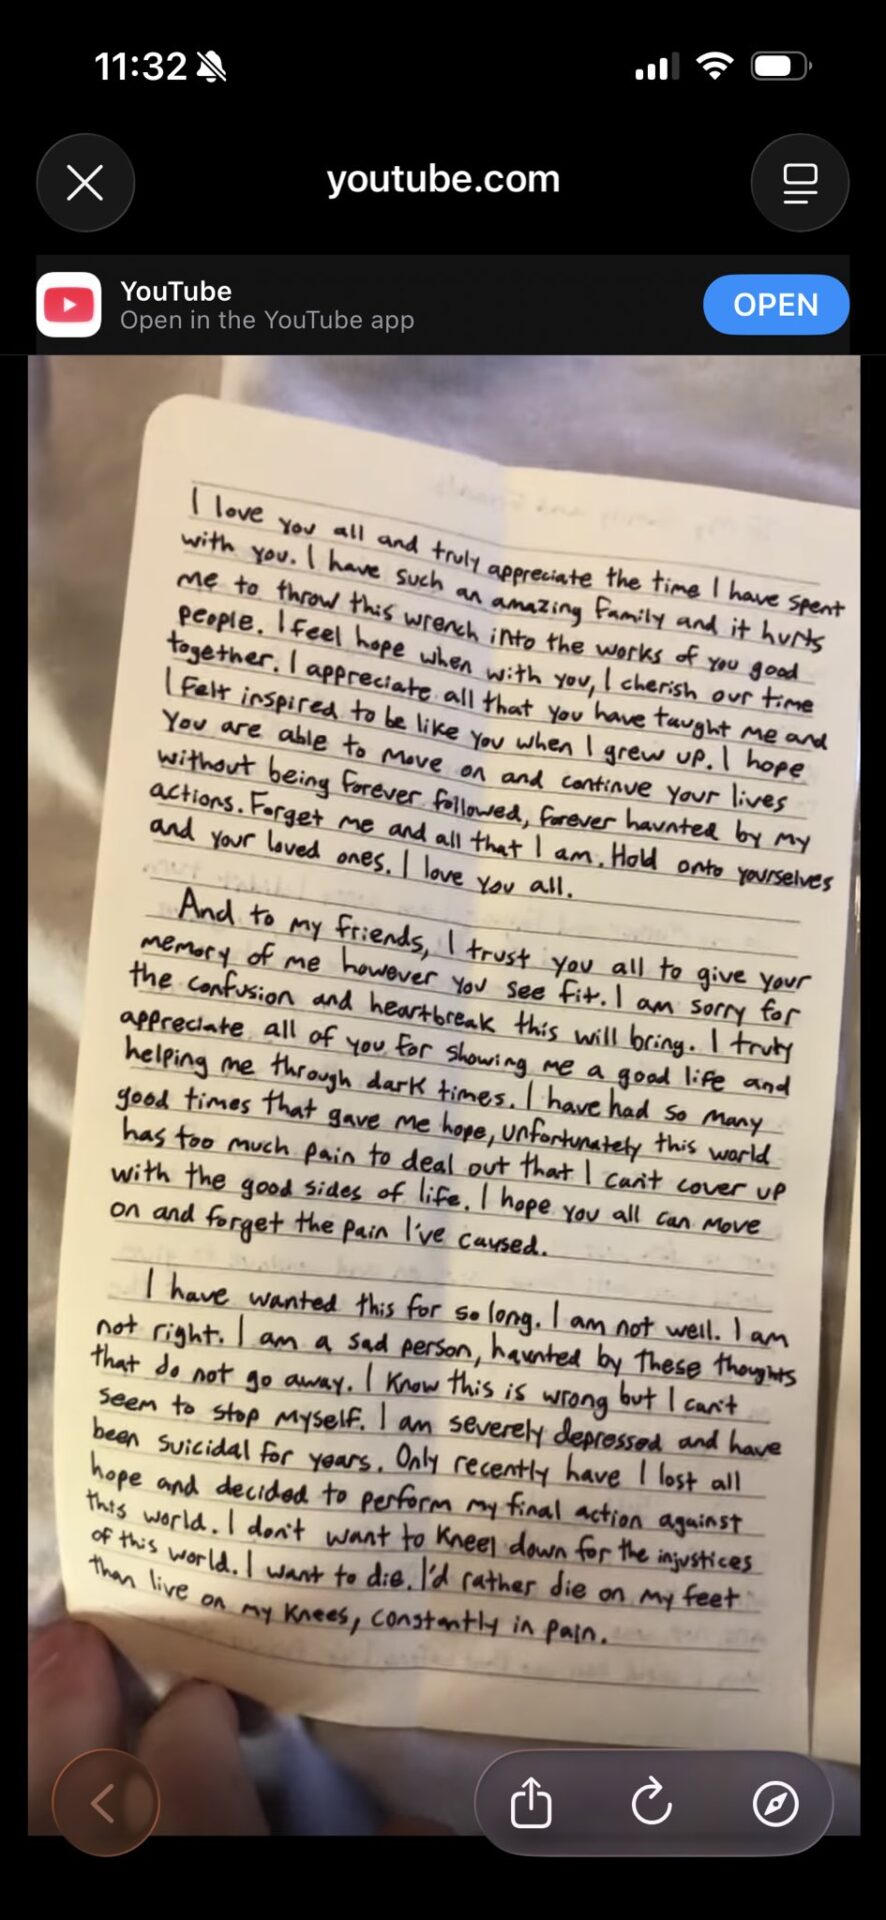 11:32
youtube.com
YouTube
Open in the YouTube app
OPEN
I love you all and truly appreciate the time I have spent
with you. I have such an amazing family and it hurts
me to throw this wrench into the works of you good
people. I feel hope when with you, I cherish our time
together. I appreciate all that you have taught me and
I felt inspired to be like you when I grew up. I hope
You are able to move on and continue your lives
without being forever followed, forever haunted by my
actions. Forget me and all that I am. Hold onto yourselves
and your loved ones. I love you all.
And to my friends, I trust you all to give your
memory of me however you see fit. I am sorry for
the confusion and heartbreak this will bring. I truly
appreciate all of you for showing me a good life and
helping me through dark times. I have had so many
good times that gave me hope, unfortunately this world
has too much pain to deal out that I can't cover up
with the good sides of life. I hope you all can move
on and forget the pain I've caused.
I have wanted this for so long. I am not well. I am
not right. I am a sad person, haunted by these thoughts
that do not go away. I know this is wrong but I can't
seem to stop myself. I am severely depressed and have
been suicidal for years. Only recently have I lost all
hope and decided to perform my final action against
this world. I don't want to kneel down for the injustices
of this world. I want to die. I'd rather die on my feet
than live on my knees, constantly in pain.